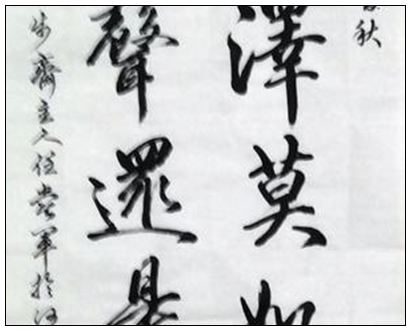 秋
澤莫如
聲還是
齋主人任軍於